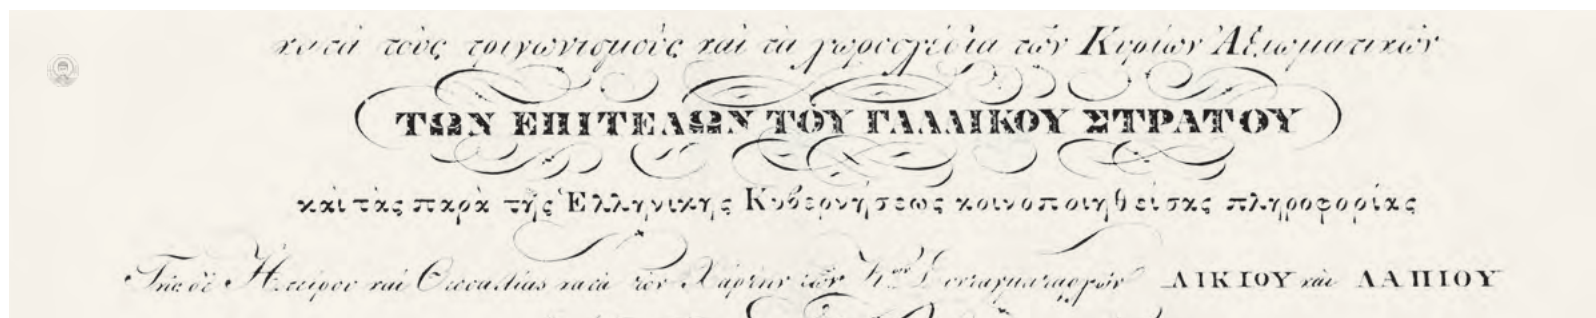 κατά τοὺς τριγωνισμοὺς καὶ τὰ χωροσχέδια τῶν Κυρίων Ἀξιωματικῶν
ΤΩΝ ΕΠΙΤΕΛΩΝ ΤΟΥ ΓΑΛΛΙΚΟΥ ΣΤΡΑΤΟΥ
καὶ τὰς παρὰ τῆς Ἑλληνικης Κυβερνήσεως κοινοποιηθείσας πληροφορίας
Τῆς δὲ Ἠπείρου καὶ Θεσσαλίας κατὰ τὸν Χάρτην τῶν Κ<sup>ων</sup> Συνταγματαρχῶν ΛΙΚΙΟΥ καὶ ΛΑΠΙΟΥ